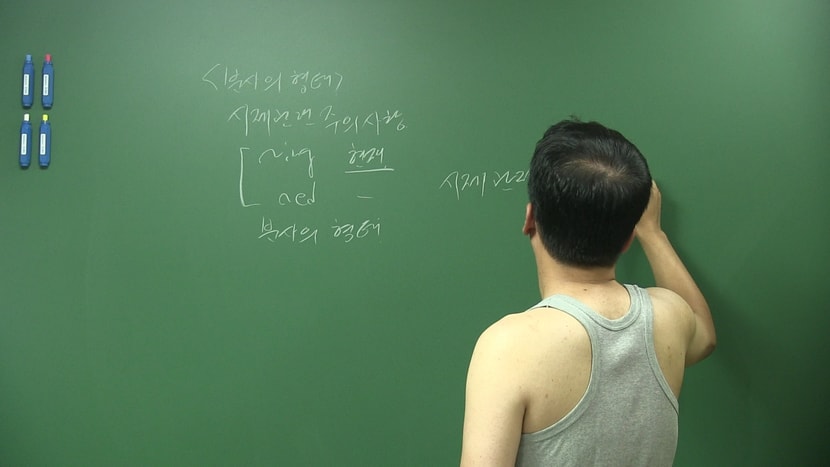 <분사의 형태>
시제관련 주의사항
~ing 현재
~ed —
분사의 형태
시제 관